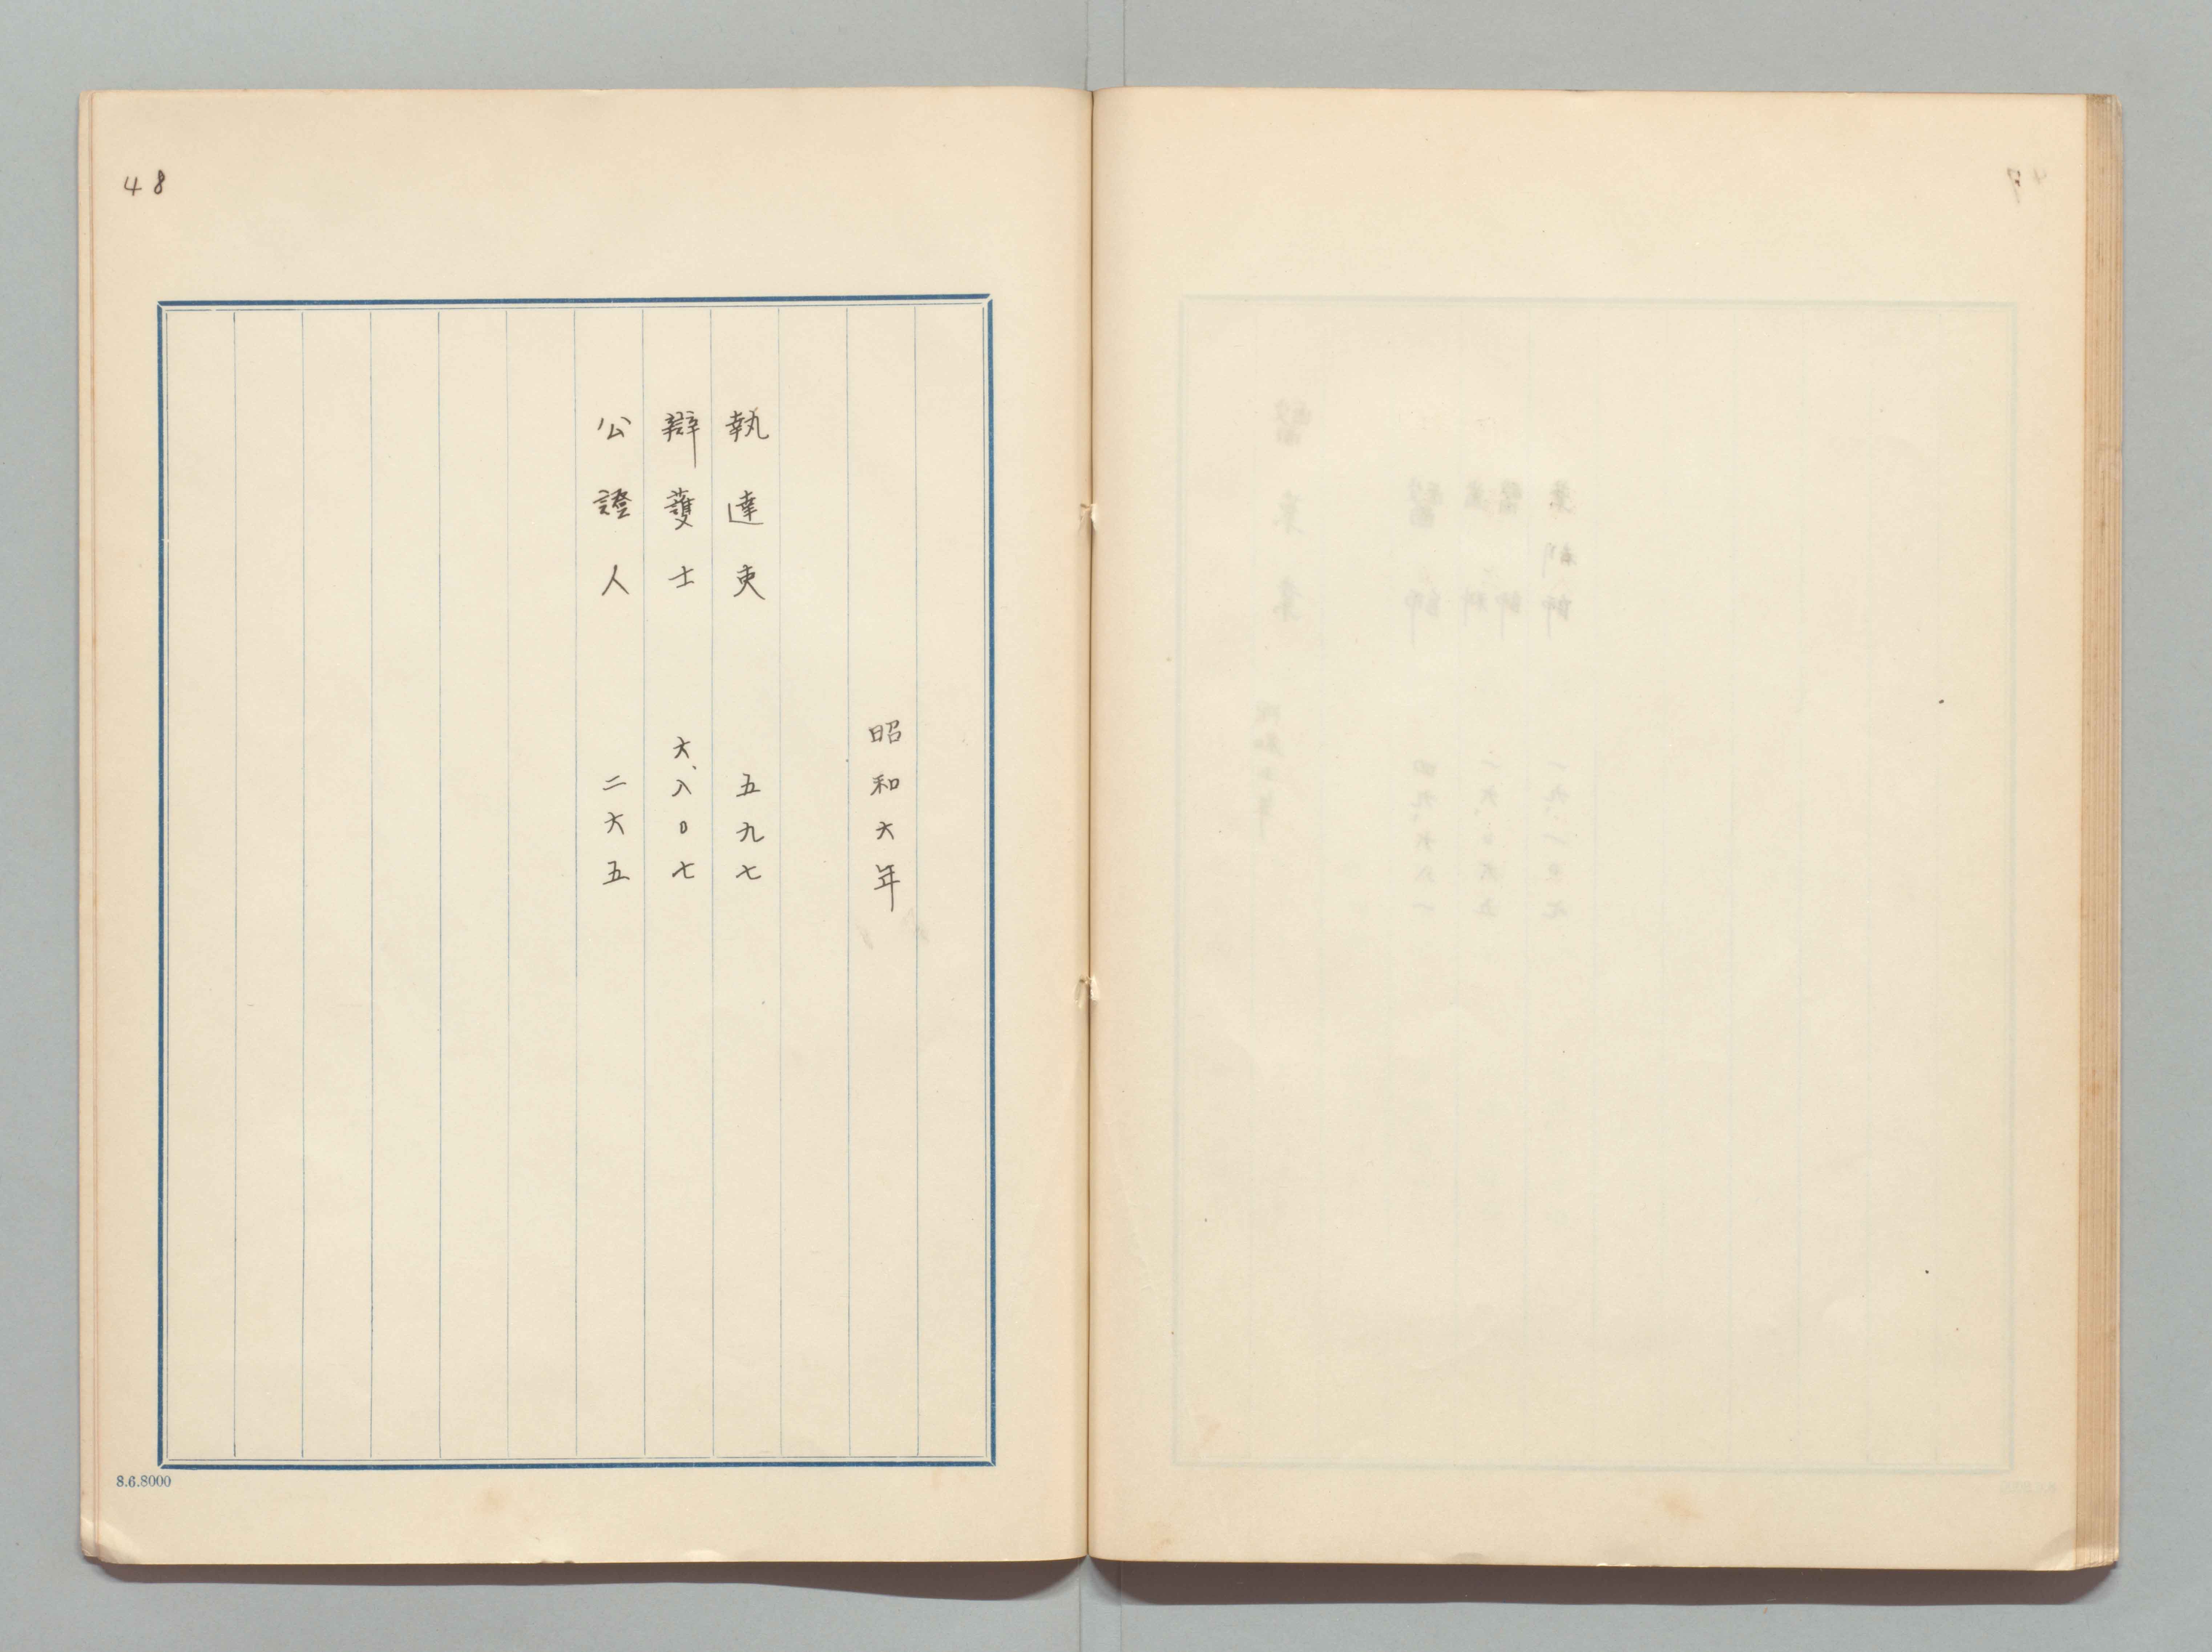 48
昭和六年
執達吏 五九七
辯護士 六、八〇七
公證人 二六五
8.6.8000